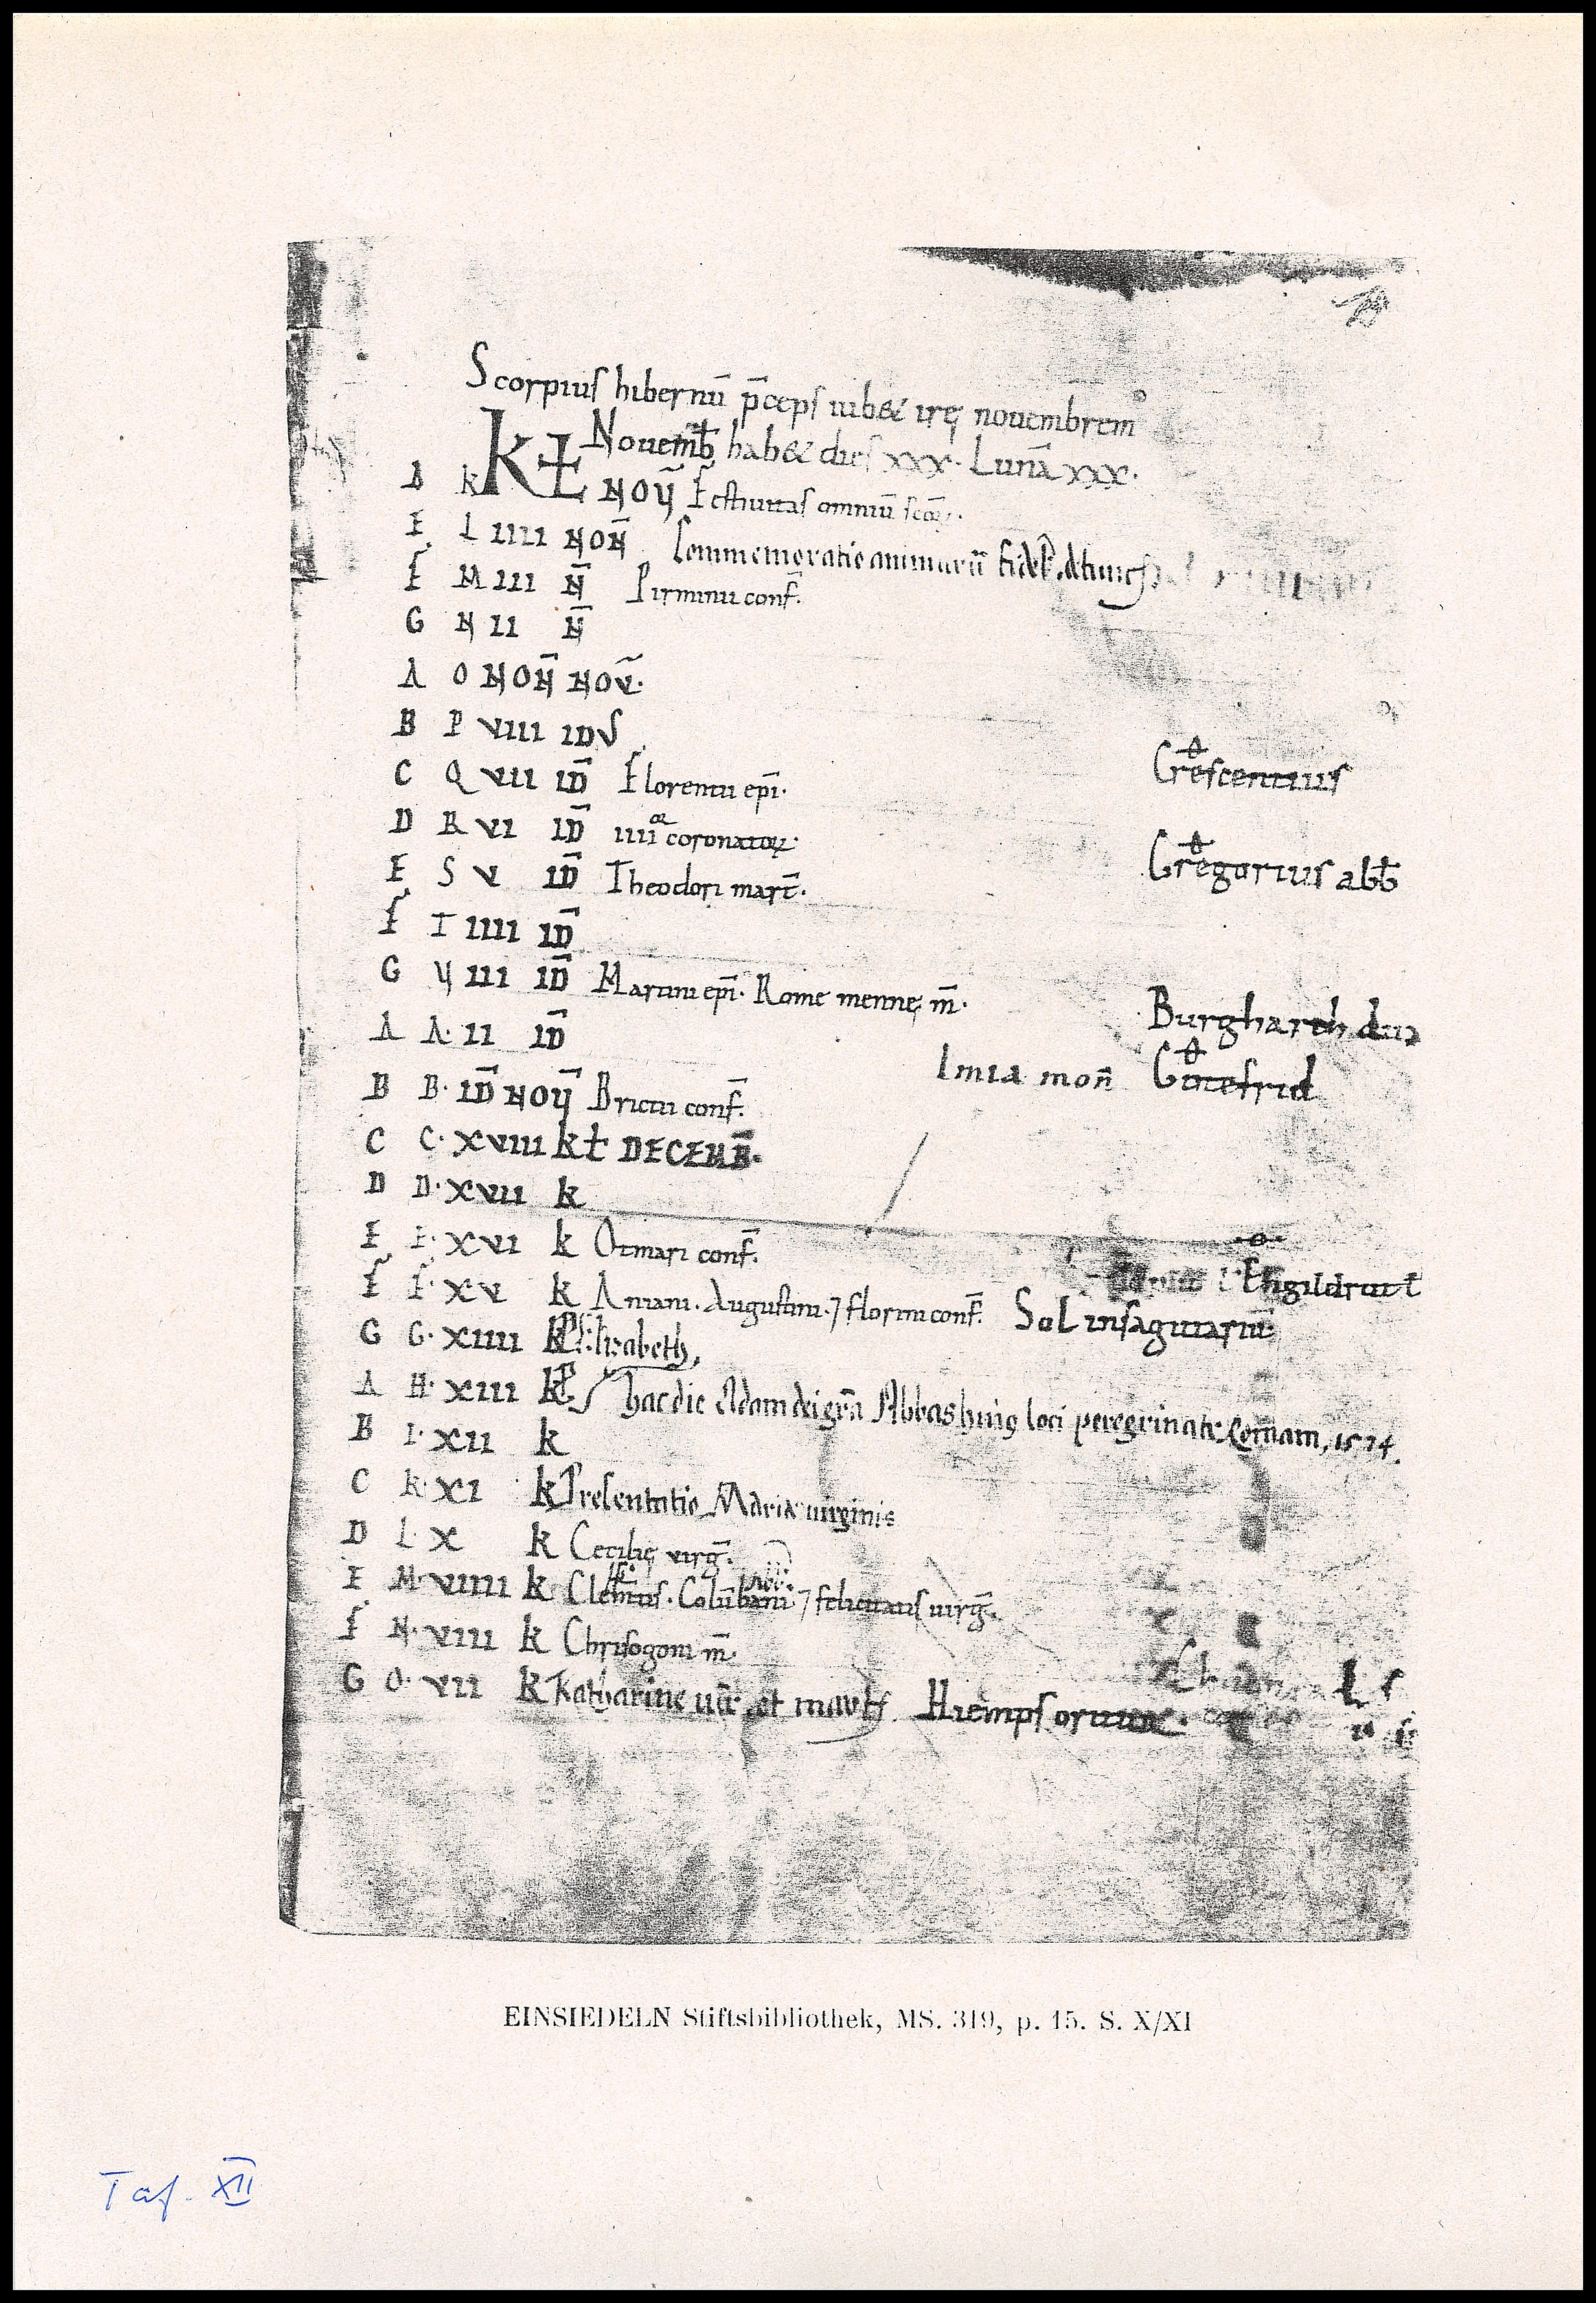 Scorpius hibernū p̄ceps iub& irę novembrem
KL Novemb hab& dies xxx. Lunā xxx.
D k NOV Festiuitas omniū scōꝝ.
E L IIII NOÑ Commemoratio animarū fidel
F M III N̄ Pirminii conf̄.
G N II N̄
A O NOÑ NOV̄.
B P VIII IDVS
C Q VII ID̄ Florentii ep̄i. Crescentius
D R VI ID̄ IIII coronatoꝝ.
E S V ID̄ Theodori mart̄. Gregorius abb
F T IIII ID̄
G V III ID̄ Martini ep̄i. Rome mennę m̄. Burgharth dux
A A. II ID̄ Imia moñ Cunefrid
B B. ID̄ NOV Brictii conf̄.
C C. XVIII KL DECEMB̄.
D D. XVII k
E E. XVI k Otmari conf̄. Engildrut
F F. XV k Aniani. Augustini. ⁊ florini conf̄. Sol in sagittariū
G G. XIIII k Elizabeth,
A H. XIII k hac die Adam dei grā Abbas huiꝯ loci peregrinatꝰ 1574.
B I. XII k
C K. XI k Presentatio Mariæ uirginis
D L. X k Cecilię virḡ.
E M. VIIII k Clem̄tis. Colūbani ⁊ felicitatis uirḡ.
F N. VIII k Chrisogoni m̄.
G O. VII k Katharine et Hiemps oritur.
EINSIEDELN Stiftsbibliothek, MS. 319, p. 15. S. X/XI
Taf. XII